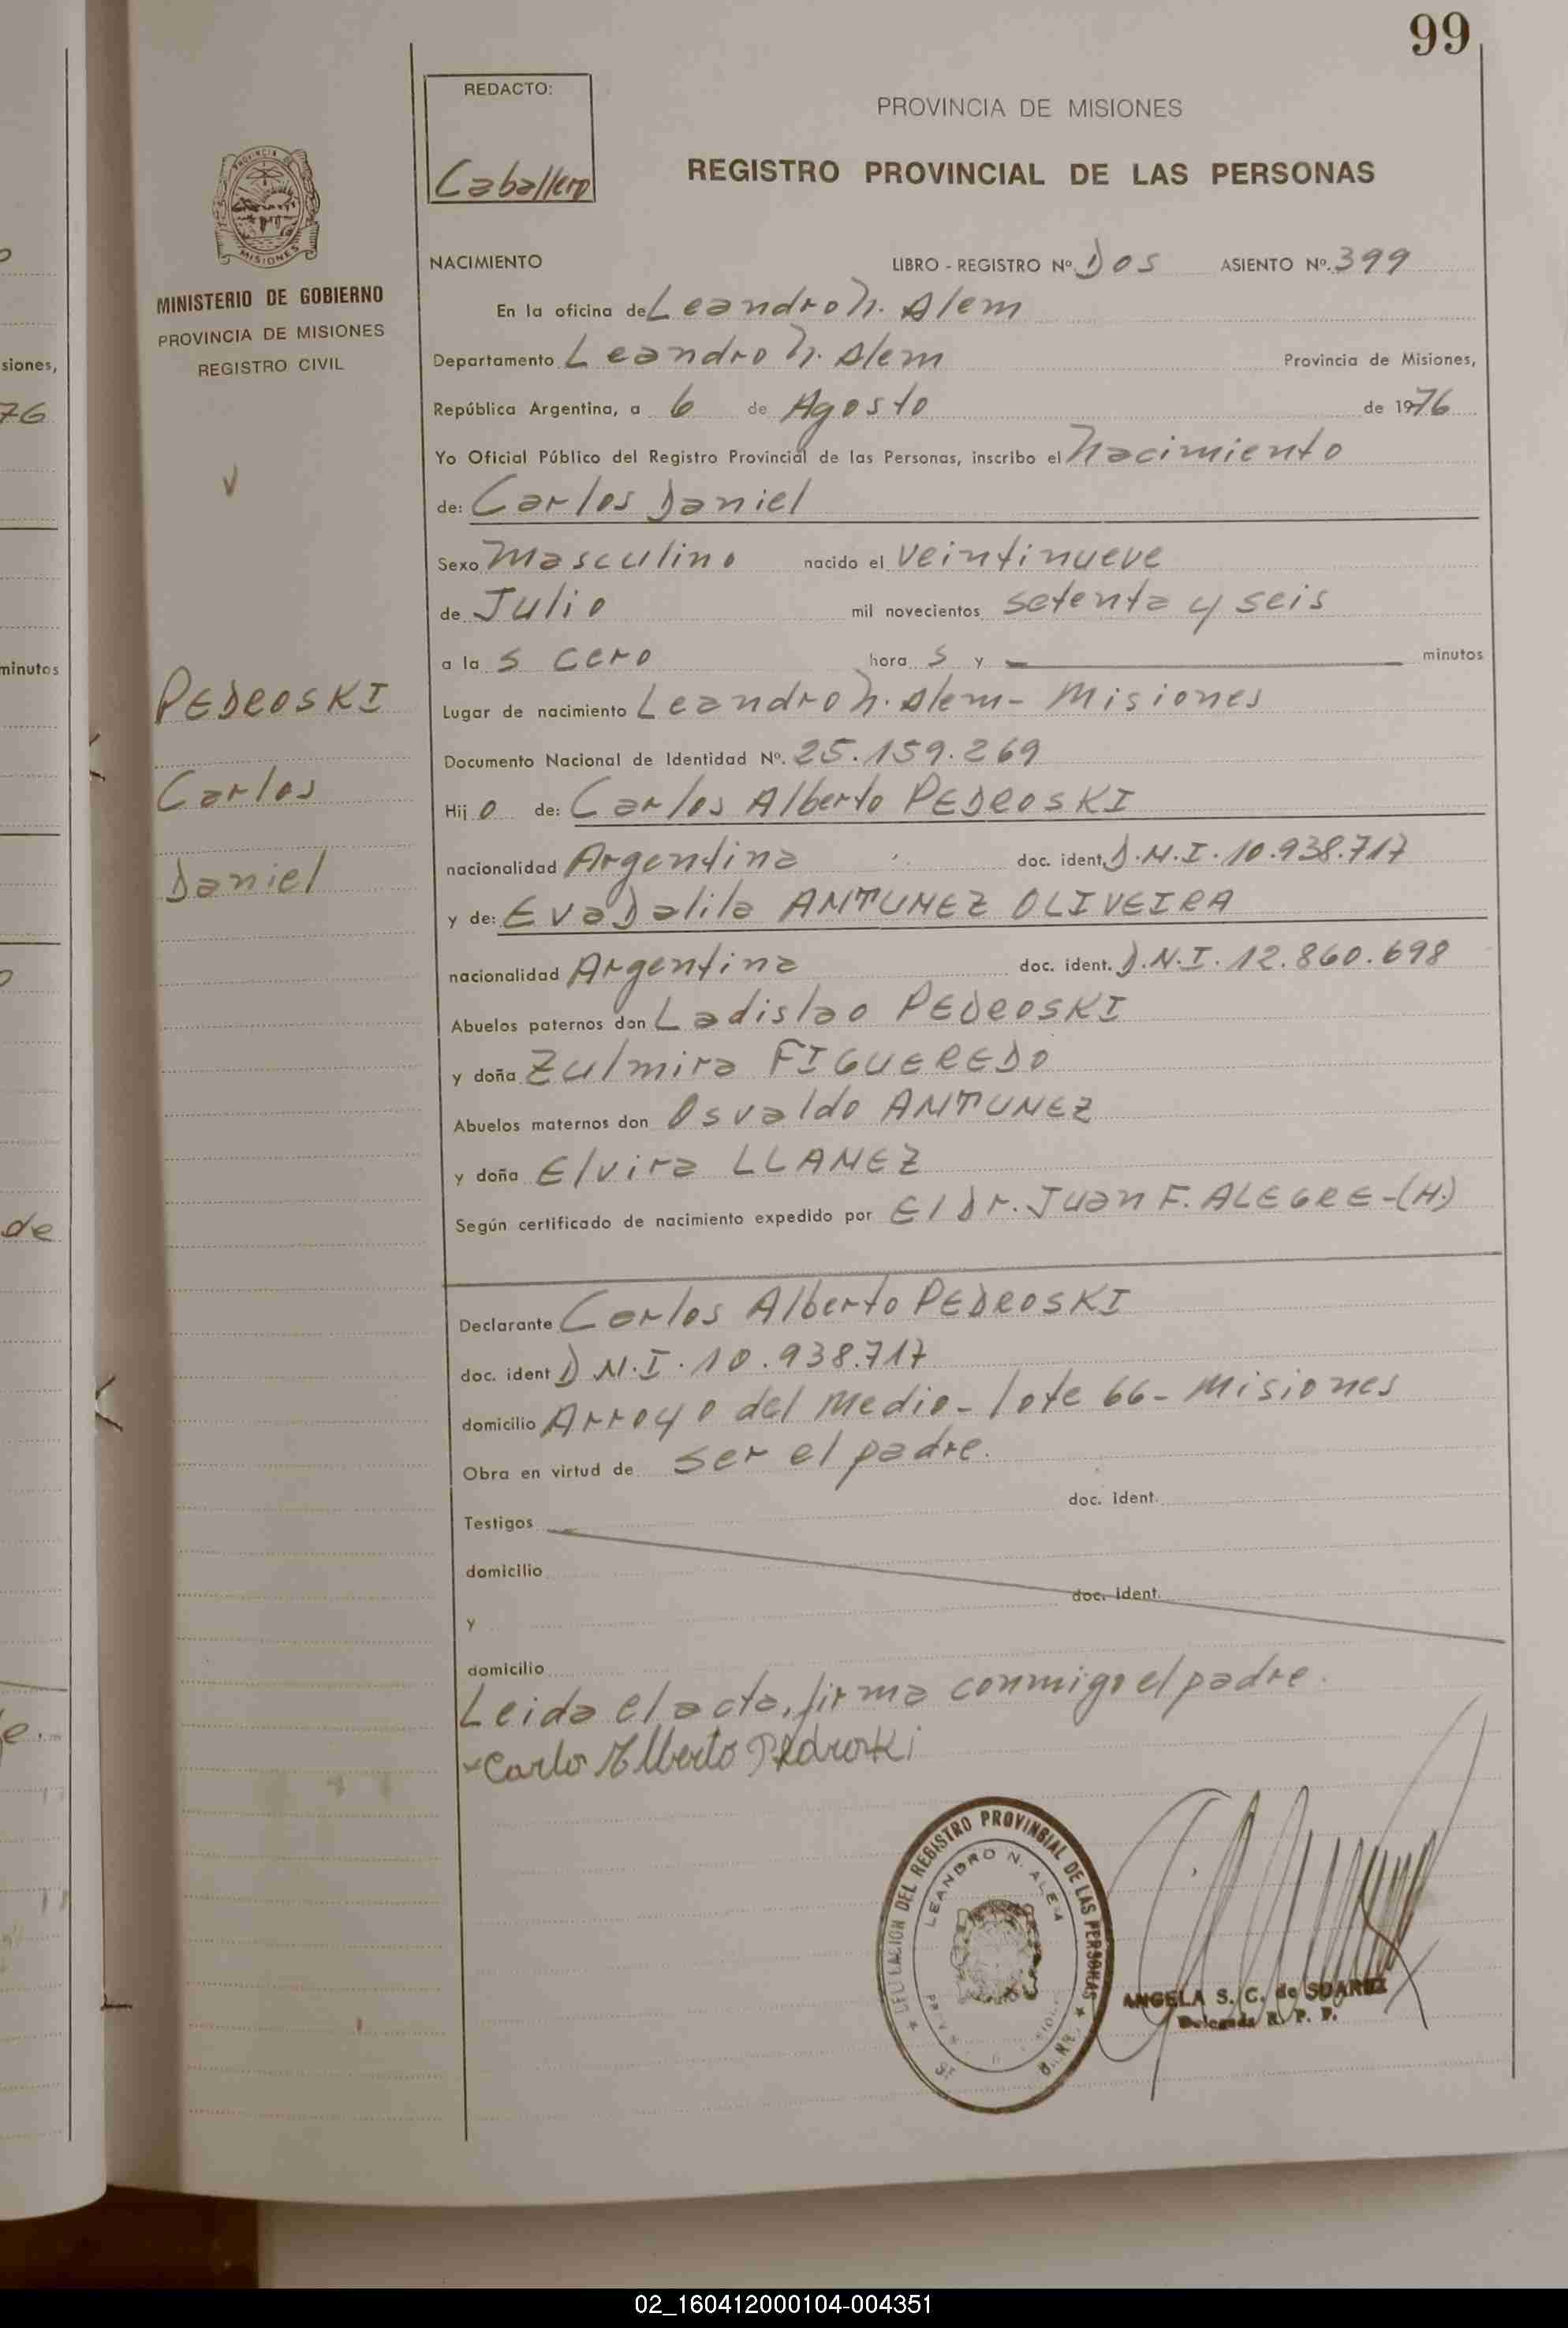 99
REDACTO:
Caballero
PROVINCIA DE MISIONES
REGISTRO PROVINCIAL DE LAS PERSONAS
PROVINCIA DE
MISIONES
MINISTERIO DE GOBIERNO
PROVINCIA DE MISIONES
REGISTRO CIVIL
siones,
76
minutos
de
PEDROSKI
Carlos
Daniel
NACIMIENTO LIBRO - REGISTRO Nº Dos ASIENTO Nº. 399
En la oficina de Leandro N. Alem
Departamento Leandro N. Alem Provincia de Misiones,
República Argentina, a 6 de Agosto de 1976
Yo Oficial Público del Registro Provincial de las Personas, inscribo el Nacimiento
de: Carlos Daniel
Sexo Masculino nacido el veintinueve
de Julio mil novecientos setenta y seis
a la s cero hora s y — minutos
Lugar de nacimiento Leandro N. Alem - Misiones
Documento Nacional de Identidad Nº. 25.159.269
Hij o de: Carlos Alberto PEDROSKI
nacionalidad Argentina doc. ident. D.N.I. 10.938.717
y de: Eva Dalila ANTUNEZ OLIVEIRA
nacionalidad Argentina doc. ident. D.N.I. 12.860.698
Abuelos paternos don Ladislao PEDROSKI
y doña Zulmira FIGUEREDO
Abuelos maternos don Osvaldo ANTUNEZ
y doña Elvira LLANEZ
Según certificado de nacimiento expedido por El Dr. Juan F. ALEGRE-(H.)
Declarante Carlos Alberto PEDROSKI
doc. ident D.N.I. 10.938.717
domicilio Arroyo del Medio - lote 66 - Misiones
Obra en virtud de ser el padre.
doc. ident.
Testigos
domicilio
doc. ident.
y
domicilio
Leida el acta, firma conmigo el padre.
Carlo Alberto Pedroski
DELEGACION DEL REGISTRO PROVINCIAL DE LAS PERSONAS
LEANDRO N. ALEM
ANGELA S. C. de SUAREZ
Delegada R. P. P.
02_160412000104-004351